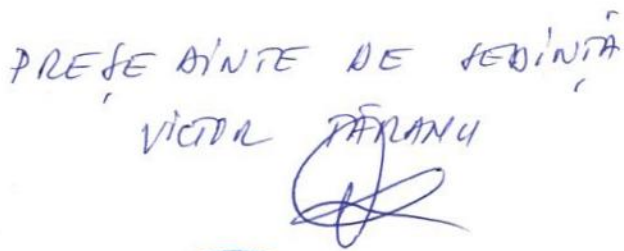 PREȘEDINTE DE ȘEDINȚĂ
VICTOR PĂRANU